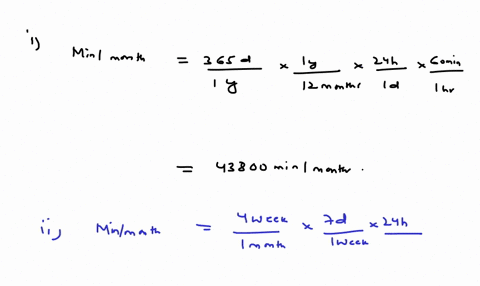 i) Min/month = 365 d / 1 y × 1y / 12 months × 24h / 1d × 60min / 1hr
= 43800 min/month.
ii) Min/month = 4 week / 1 month × 7d / 1 week × 24h